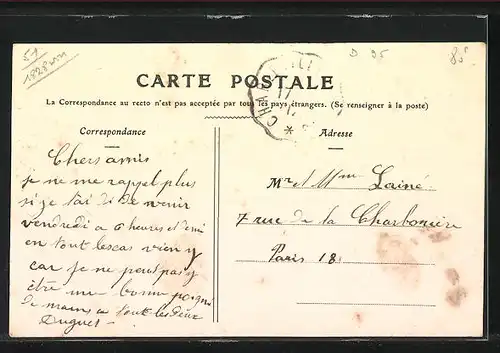 51
1828wn
D 95
85
CARTE POSTALE
La Correspondance au recto n'est pas acceptée par tous les pays étrangers. (Se renseigner à la poste)
Correspondance
Chers amis
je ne me rappel plus
si je t'ai di de venir
vendredi a 6 heures et demi
en tout les cas vien y
car je ne peut pas y
être une bonne poigné
de mains a tout les deux
Adresse
Mr et Mme Lainé
7 rue de la Charbonière
Paris 18